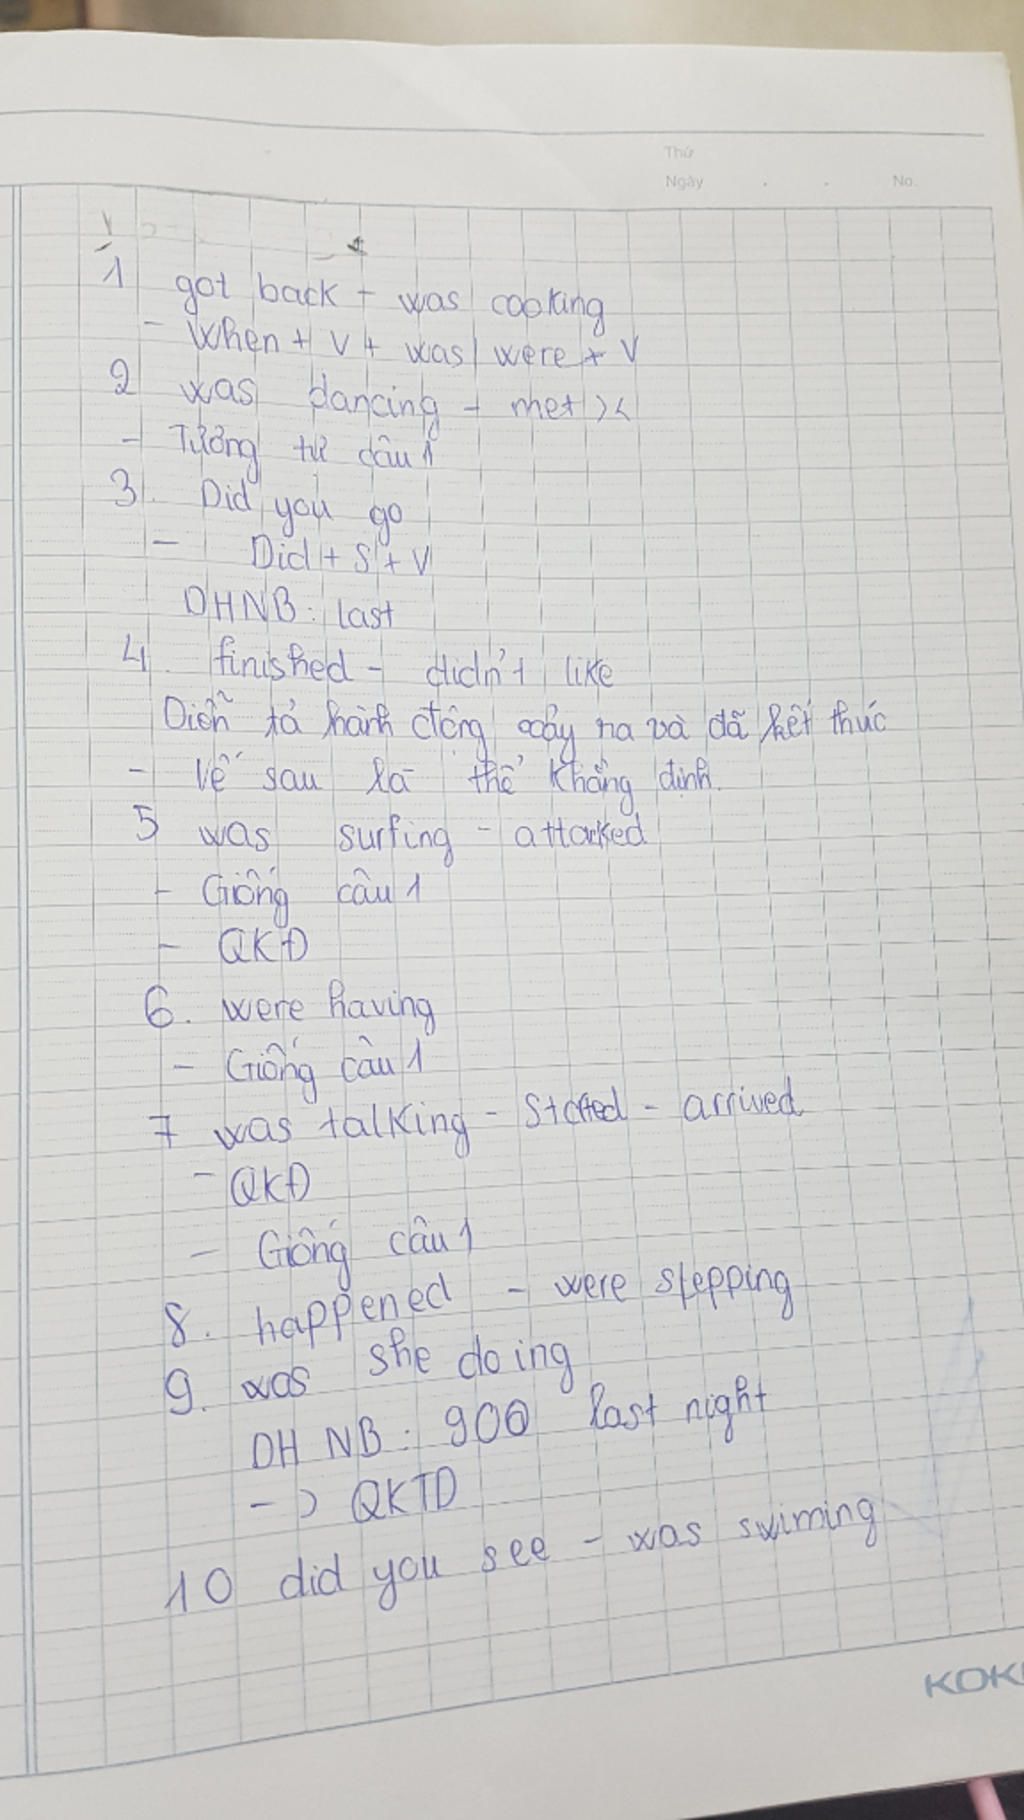 Thứ
Ngày . . No.
1 got back - was cooking
- When + V + was/were + V
2 was dancing - met ><
- Tương tự câu 1
3. Did you go
- Did + S + V
DHNB: last
4. finished - didn't like
Diễn tả hành động xảy ra và đã kết thúc
- Vế sau là thể khẳng định.
5 was surfing - attacked
- Giống câu 1
- QKĐ
6. were having
- Giống câu 1
7 was talking - started - arrived
- QKĐ
- Giống câu 1
8. happened - were stepping
9. was she doing
DHNB: 900 last night
-> QKTD
10 did you see - was swiming